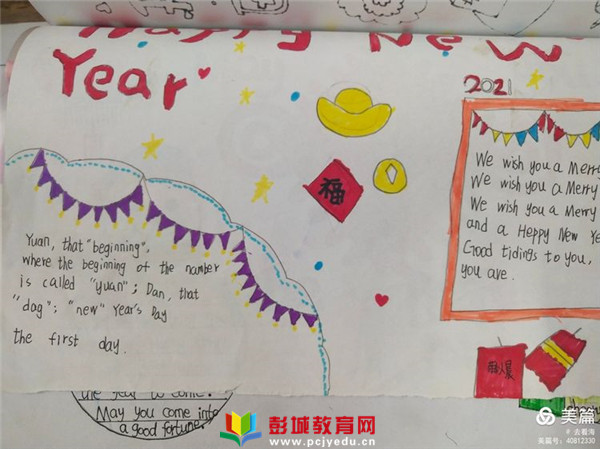 Happy New
Year
2021
福
We wish you a Merry
We wish you a Merry
We wish you a Merry
and a Heppy New Ye
Good tidings to you,
you are.
Yuan, that "beginning",
where the beginning of the number
is called "yuan"; Dan, that
"dag"; "new" Year's Day
the first day.
the year to come.
May you come into
a good fortune.
彭城教育网
www.pcjyedu.cn
美篇
去看海
美篇号: 40812330